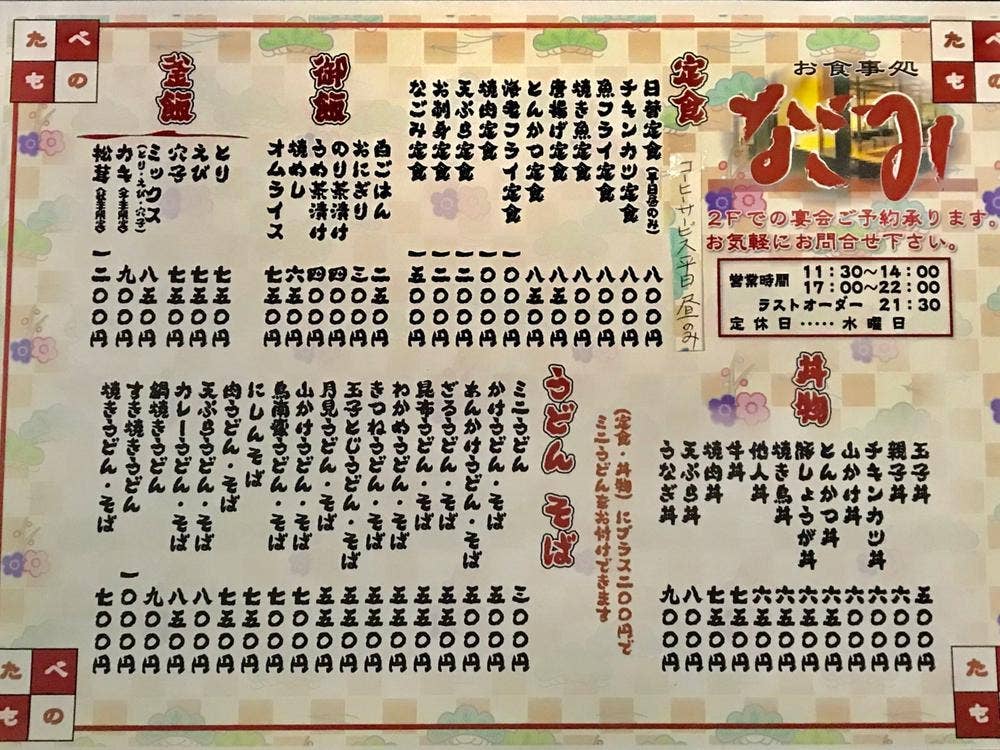 たべ
もの
お食事処
なごみ
2Fでの宴会ご予約承ります。
お気軽にお問合せ下さい。
営業時間 11:30～14:00
17:00～22:00
ラストオーダー 21:30
定休日‥‥‥水曜日
定食
コーヒーサービス平日昼のみ
日替定食(平日昼のみ) 八〇〇円
チキンカツ定食 八〇〇円
魚フライ定食 八〇〇円
焼き魚定食 八〇〇円
唐揚げ定食 八五〇円
とんかつ定食 八五〇円
海老フライ定食 一〇〇〇円
焼肉定食 一〇〇〇円
天ぷら定食 一二〇〇円
お刺身定食 一二〇〇円
なごみ定食 一五〇〇円
御飯
白ごはん 二五〇円
おにぎり 三〇〇円
のり茶漬け 四〇〇円
うめ茶漬け 四〇〇円
焼めし 六五〇円
オムライス 七五〇円
釜飯
とり 七五〇円
えび 七五〇円
穴子 七五〇円
ミックス(とり・えび・穴子) 八五〇円
カキ(冬季限定) 九〇〇円
松茸(秋季限定) 一二〇〇円
丼物
玉子丼 五〇〇円
親子丼 六〇〇円
チキンカツ丼 六〇〇円
山かけ丼 六〇〇円
とんかつ丼 六五〇円
豚しょうが丼 六五〇円
焼き鳥丼 六五〇円
他人丼 六五〇円
牛丼 七五〇円
焼肉丼 七五〇円
天ぷら丼 八〇〇円
うなぎ丼 九〇〇円
(定食・丼物)にプラス二〇〇円で
ミニうどんをお付けできます
うどん そば
ミニうどん 三〇〇円
かけうどん・そば 五〇〇円
あんかけうどん・そば 五五〇円
ざるうどん・そば 五五〇円
昆布うどん・そば 五五〇円
わかめうどん・そば 五五〇円
きつねうどん・そば 五五〇円
玉子とじうどん・そば 五五〇円
月見うどん・そば 五五〇円
山かけうどん・そば 七〇〇円
鳥南蛮うどん・そば 七〇〇円
にしんそば 七五〇円
肉うどん・そば 七五〇円
天ぷらうどん・そば 八〇〇円
カレーうどん・そば 八五〇円
鍋焼きうどん 九〇〇円
すき焼きうどん 一〇〇〇円
焼きうどん・そば 七〇〇円
たべ
もの
たべ
もの
たべ
もの